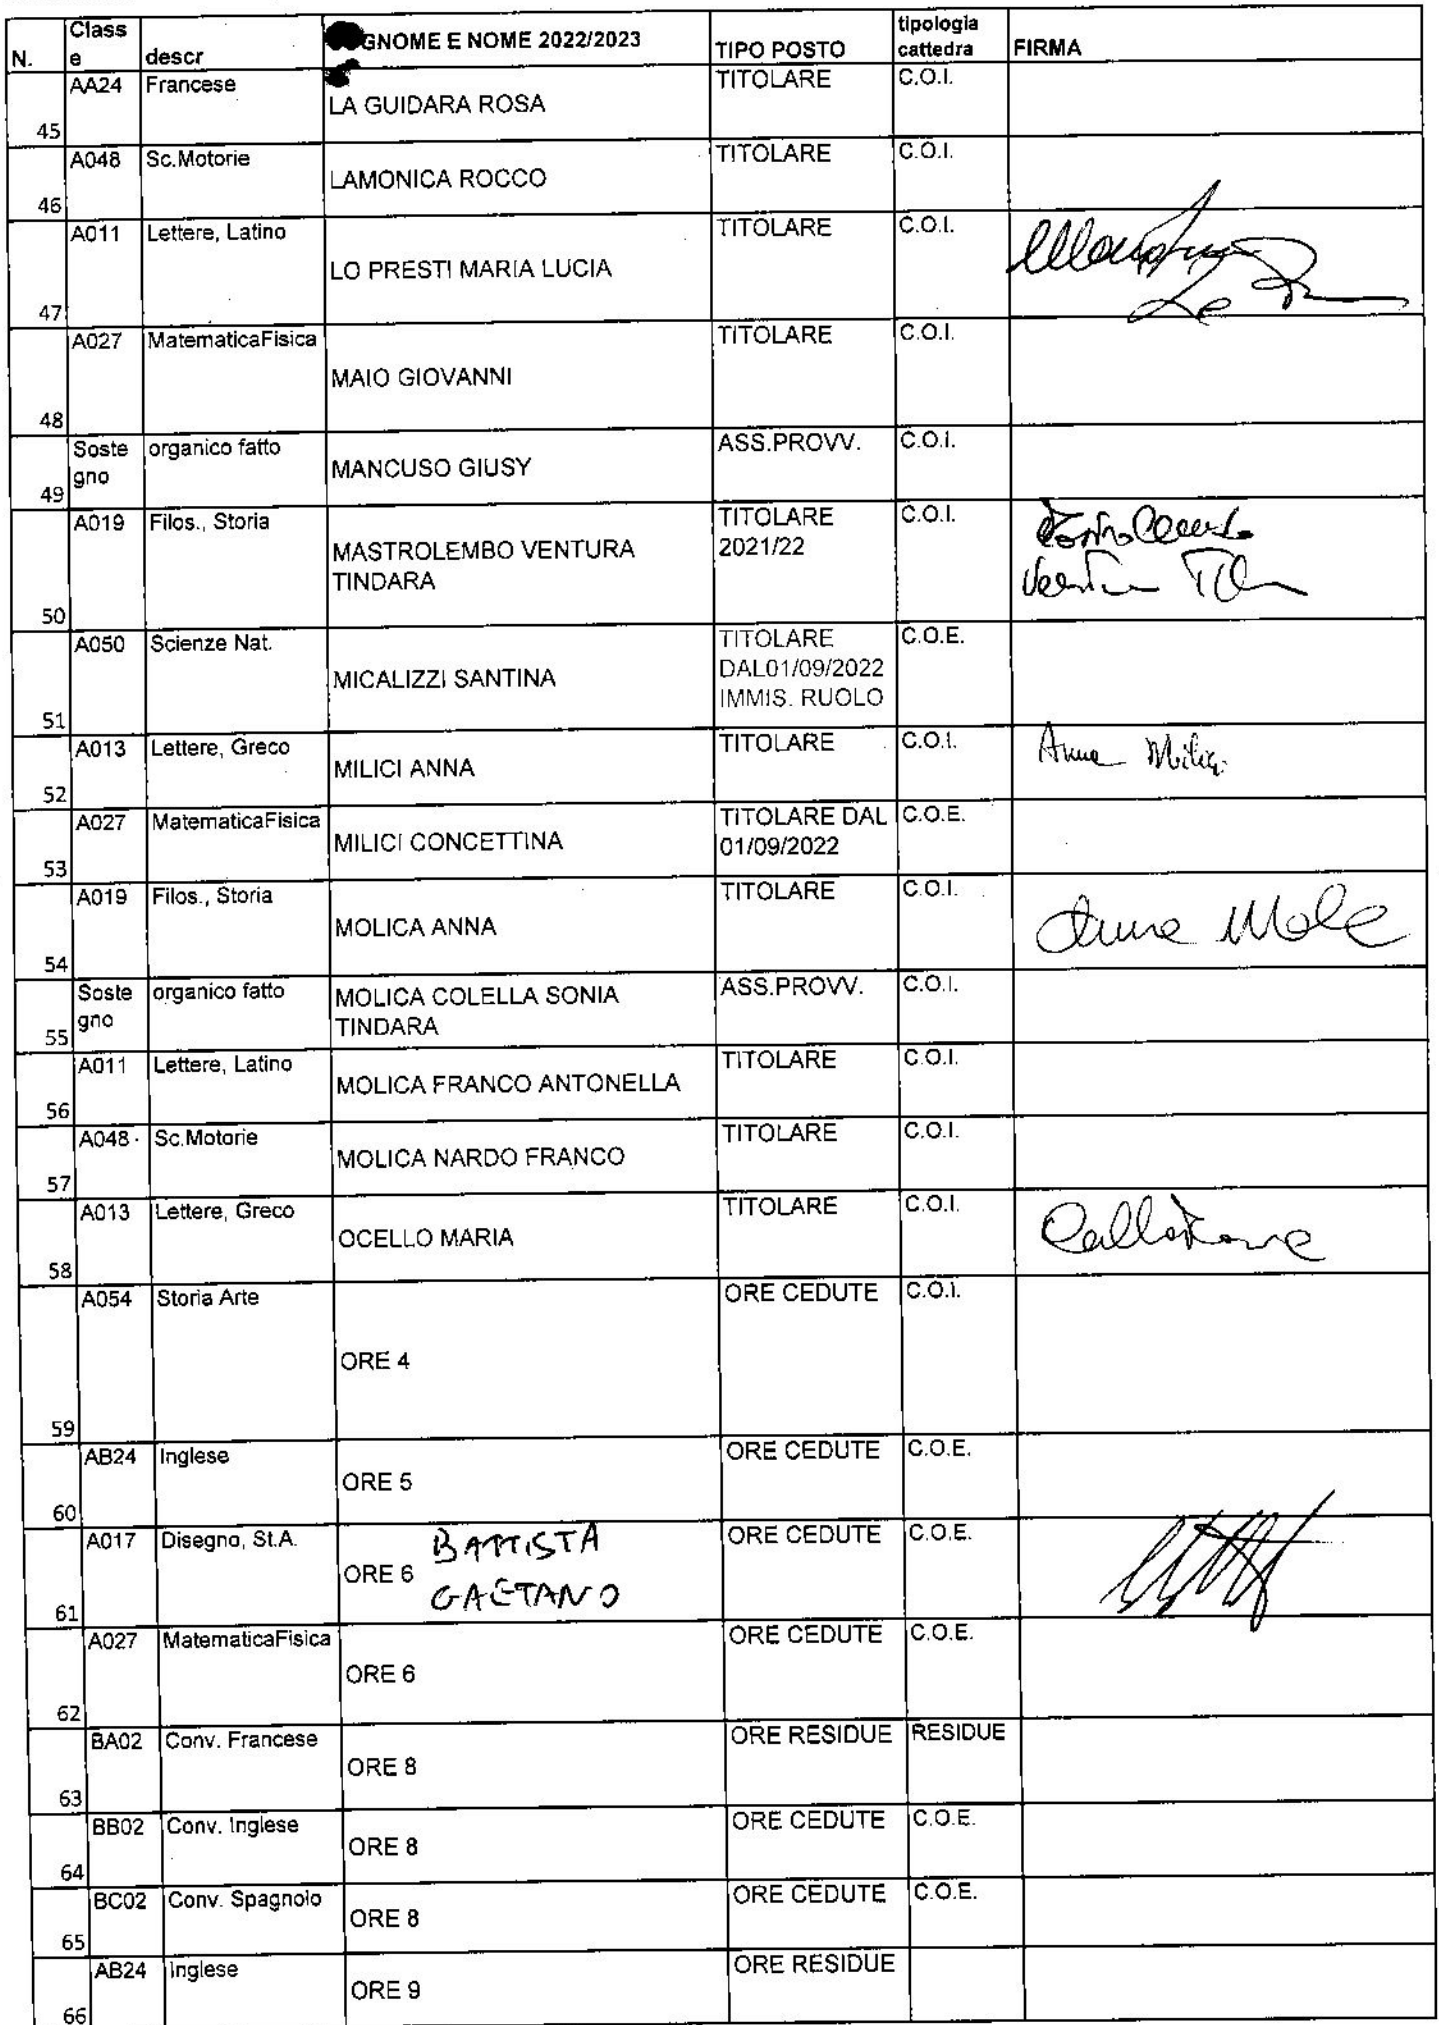 N. Class e descr GNOME E NOME 2022/2023 TIPO POSTO tipologia cattedra FIRMA
45 AA24 Francese LA GUIDARA ROSA TITOLARE C.O.I.
46 A048 Sc.Motorie LAMONICA ROCCO TITOLARE C.O.I.
47 A011 Lettere, Latino LO PRESTI MARIA LUCIA TITOLARE C.O.I.
48 A027 MatematicaFisica MAIO GIOVANNI TITOLARE C.O.I.
49 Soste gno organico fatto MANCUSO GIUSY ASS.PROVV. C.O.I.
50 A019 Filos., Storia MASTROLEMBO VENTURA TINDARA TITOLARE 2021/22 C.O.I.
51 A050 Scienze Nat. MICALIZZI SANTINA TITOLARE DAL01/09/2022 IMMIS. RUOLO C.O.E.
52 A013 Lettere, Greco MILICI ANNA TITOLARE C.O.I. Anna Milici
53 A027 MatematicaFisica MILICI CONCETTINA TITOLARE DAL 01/09/2022 C.O.E.
54 A019 Filos., Storia MOLICA ANNA TITOLARE C.O.I. Anna
55 Soste gno organico fatto MOLICA COLELLA SONIA TINDARA ASS.PROVV. C.O.I.
56 A011 Lettere, Latino MOLICA FRANCO ANTONELLA TITOLARE C.O.I.
57 A048 Sc.Motorie MOLICA NARDO FRANCO TITOLARE C.O.I.
58 A013 Lettere, Greco OCELLO MARIA TITOLARE C.O.I.
59 A054 Storia Arte ORE 4 ORE CEDUTE C.O.I.
60 AB24 Inglese ORE 5 ORE CEDUTE C.O.E.
61 A017 Disegno, St.A. ORE 6 BATTISTA GAETANO ORE CEDUTE C.O.E.
62 A027 MatematicaFisica ORE 6 ORE CEDUTE C.O.E.
63 BA02 Conv. Francese ORE 8 ORE RESIDUE RESIDUE
64 BB02 Conv. Inglese ORE 8 ORE CEDUTE C.O.E.
65 BC02 Conv. Spagnolo ORE 8 ORE CEDUTE C.O.E.
66 AB24 Inglese ORE 9 ORE RESIDUE